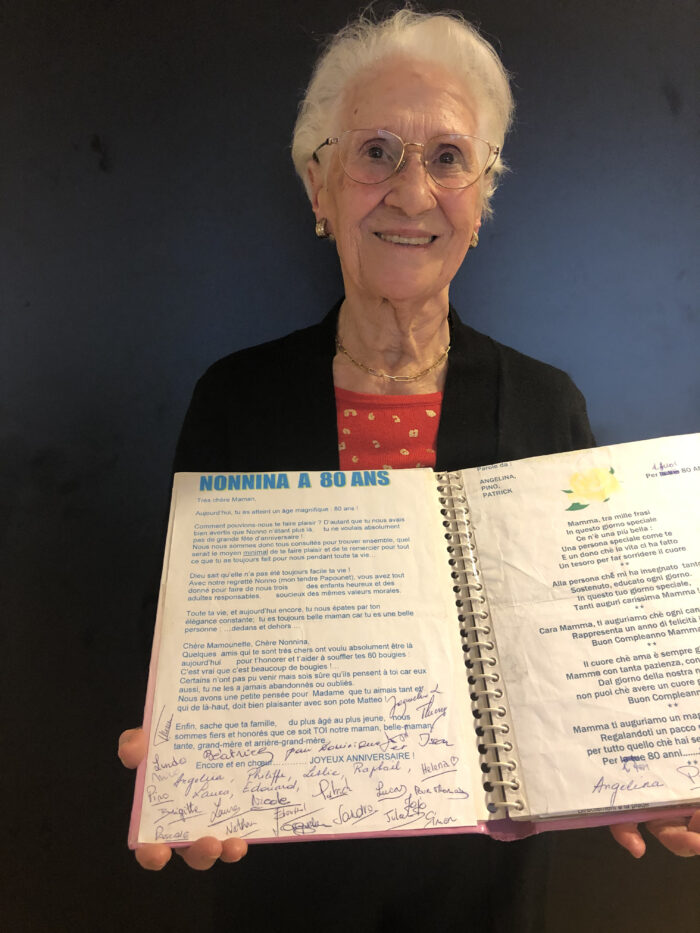 NONNINA A 80 ANS
Très chère Maman,
Aujourd'hui, tu as atteint un âge magnifique : 80 ans !
Comment pouvions-nous te faire plaisir ? D'autant que tu nous avais
bien avertis que Nonno n'étant plus là, tu ne voulais absolument
pas de grande fête d'anniversaire !
Nous nous sommes donc tous consultés pour trouver ensemble, quel
serait le moyen minimal de te faire plaisir et de te remercier pour tout
ce que tu as toujours fait pour nous pendant toute ta vie…
Dieu sait qu'elle n'a pas été toujours facile ta vie !
Avec notre regretté Nonno (mon tendre Papounet), vous avez tout
donné pour faire de nous trois des enfants heureux et des
adultes responsables, soucieux des mêmes valeurs morales.
Toute ta vie, et aujourd'hui encore, tu nous épates par ton
élégance constante; tu es toujours belle maman car tu es une belle
personne : …dedans et dehors …
Chère Mamounette, Chère Nonnina,
Quelques amis qui te sont très chers ont voulu absolument être là
aujourd'hui pour t'honorer et t'aider à souffler tes 80 bougies !
C'est vrai que c'est beaucoup de bougies !…
Certains n'ont pas pu venir mais sois sûre qu'ils pensent à toi car eux
aussi, tu ne les a jamais abandonnés ou oubliés.
Nous avons une petite pensée pour Madame que tu aimais tant et
qui de là-haut, doit bien plaisanter avec son pote Matteo !
Enfin, sache que ta famille, du plus âgé au plus jeune, nous
sommes fiers et honorés que ce soit TOI notre maman, belle-maman,
tante, grand-mère et arrière-grand-mère
Encore et en chœur JOYEUX ANNIVERSAIRE !
Béatrice
Angelina, Philippe, Leslie, Raphael, Helena
Pino Laura, Edouard, Lucas
Brigitte Laura Nicole
Pascale Nathan Sandro Julia Simon
Parole da :
ANGELINA,
PINO,
PATRICK
Per 80 A
Mamma, tra mille frasi
In questo giorno speciale
Ce n'è una più bella :
Una persona speciale come te
E un dono che la vita ci ha fatto
Un tesoro per far sorridere il cuore
**
Alla persona che mi ha insegnato tante
Sostenuto, educato ogni giorno.
In questo tuo giorno speciale,
Tanti auguri carissima Mamma !
**
Cara Mamma, ti auguriamo che ogni can
Rappresenta un anno di felicità
Buon Compleanno Mamma
**
Il cuore che ama è sempre g
Mamma con tanta pazienza, con
Dal giorno della nostra n
non puoi che avere un cuore g
Buon Compleanno
**
Mamma ti auguriamo un m
Regalandoti un pacco
per tutto quello che hai se
Per 80 anni
Angelina